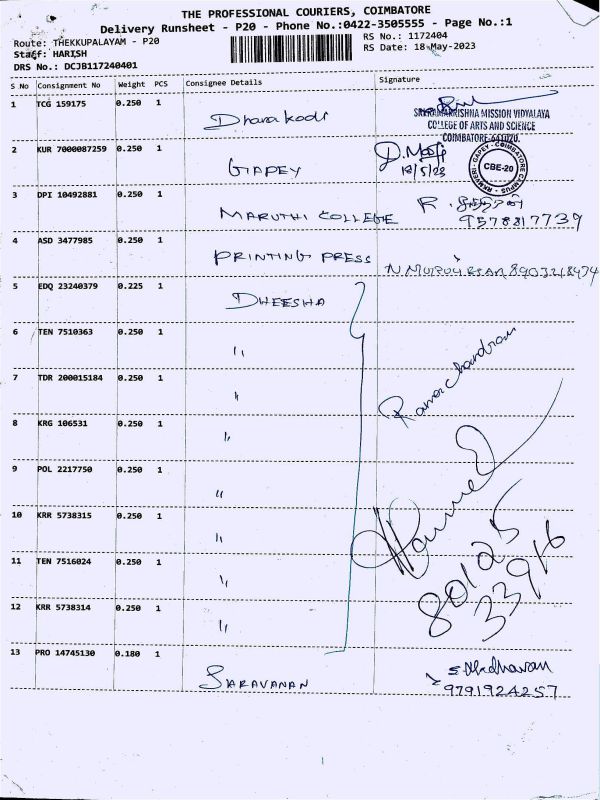 THE PROFESSIONAL COURIERS, COIMBATORE
Delivery Runsheet - P20 - Phone No.:0422-3505555 - Page No.:1
Route: THEKKUPALAYAM - P20
RS No.: 1172404
Staff: HARISH
RS Date: 18-May-2023
DRS No.: DCJB117240401
S No Consignment No Weight PCS Consignee Details Signature
1 TCG 159175 0.250 1 Dharakodi
SRI RAMAKRISHNA MISSION VIDYALAYA
COLLEGE OF ARTS AND SCIENCE
COIMBATORE-641020.
2 KUR 7000087259 0.250 1 GAPEY
18/5/23
CBE-20
3 DPI 10492881 0.250 1 MARUTHI COLLEGE R.
9578817739
4 ASD 3477985 0.250 1 PRINTING PRESS
5 EDQ 23240379 0.225 1 DHEESHA
6 TEN 7510363 0.250 1 "
7 TDR 200015184 0.250 1 "
Ramachandran
8 KRG 106531 0.250 1 "
9 POL 2217750 0.250 1 "
10 KRR 5738315 0.250 1 "
11 TEN 7516024 0.250 1 "
80125
33916
12 KRR 5738314 0.250 1 "
13 PRO 14745130 0.180 1 SARAVANAN
9791924257